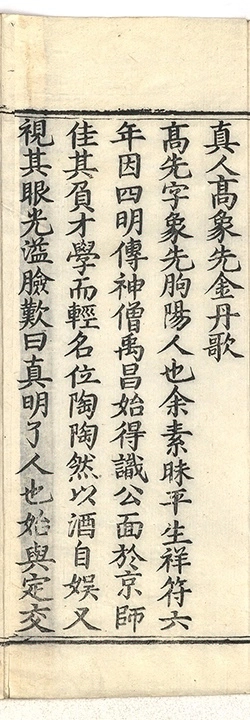 真人髙象先金丹歌
髙先字象先朐陽人也余素昧平生祥符六
年因四明傳神僧禹昌始得識公面於京師
佳其負才學而輕名位陶陶然以酒自娱又
視其眼光溢臉歎曰真明了人也始與定交